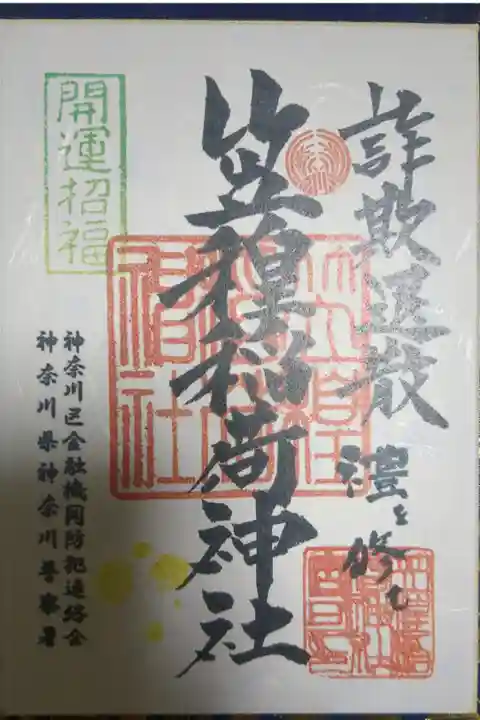 詐欺退散
禮を修む
笠䅣稲荷神社
開運招福
神奈川区金融機関防犯連絡会
神奈川県神奈川警察署